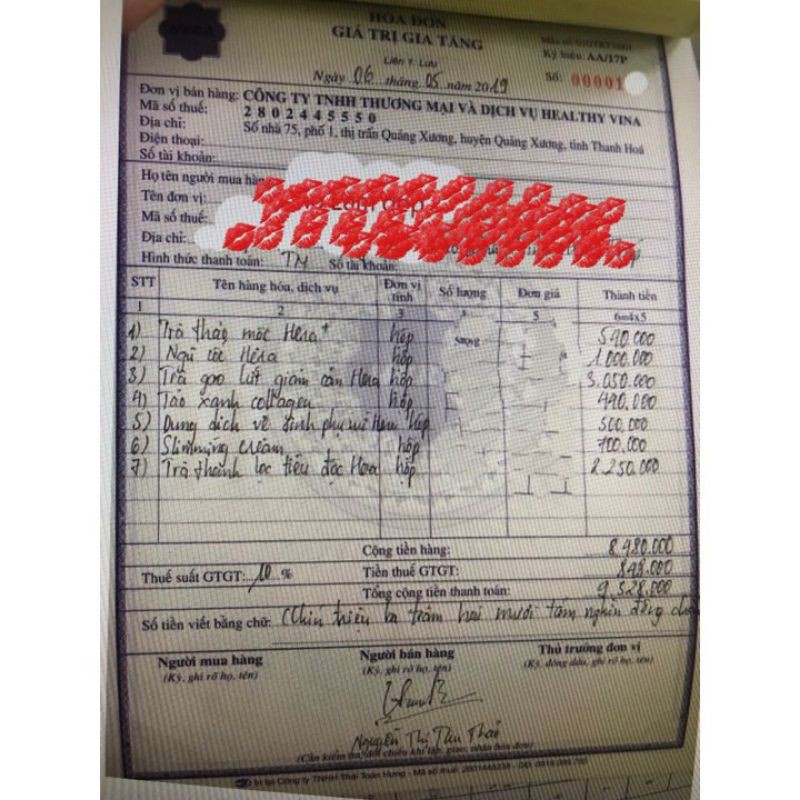 HÓA ĐƠN
GIÁ TRỊ GIA TĂNG
Liên 1: Lưu
Ngày 06 tháng 05 năm 2019
Ký hiệu: AA/17P
Số: 00001
Đơn vị bán hàng: CÔNG TY TNHH THƯƠNG MẠI VÀ DỊCH VỤ HEALTHY VINA
Mã số thuế: 2802445550
Địa chỉ: Số nhà 75, phố 1, thị trấn Quảng Xương, huyện Quảng Xương, tỉnh Thanh Hoá
Điện thoại:
Số tài khoản:
Họ tên người mua hàng
Tên đơn vị:
Mã số thuế:
Địa chỉ:
Hình thức thanh toán: TM Số tài khoản:
STT Tên hàng hóa, dịch vụ Đơn vị tính Số lượng Đơn giá Thành tiền
1 2 3 4 5 6=4x5
1) Trà thảo mộc Hera+ hộp 540.000
2) Ngũ cốc Hera hộp 1.000.000
3) Trà gạo lứt giảm cân Hera hộp 3.050.000
4) Táo xanh collagen hộp 440.000
5) Dung dịch vệ sinh phụ nữ Hera hộp 500.000
6) Slimming cream hộp 700.000
7) Trà thanh lọc tiêu độc Hera hộp 2.250.000
Cộng tiền hàng: 8.480.000
Thuế suất GTGT: 10 % Tiền thuế GTGT: 848.000
Tổng cộng tiền thanh toán: 9.328.000
Số tiền viết bằng chữ: Chín triệu ba trăm hai mươi tám nghìn đồng
Người mua hàng Người bán hàng Thủ trưởng đơn vị
(Ký, ghi rõ họ, tên) (Ký, ghi rõ họ, tên) (Ký, đóng dấu, ghi rõ họ, tên)
Nguyễn Thị Thu Thảo
(Cần kiểm tra đối chiếu khi lập, giao, nhận hóa đơn)
In tại Công ty TNHH Thái Toàn Hưng - Mã số thuế: